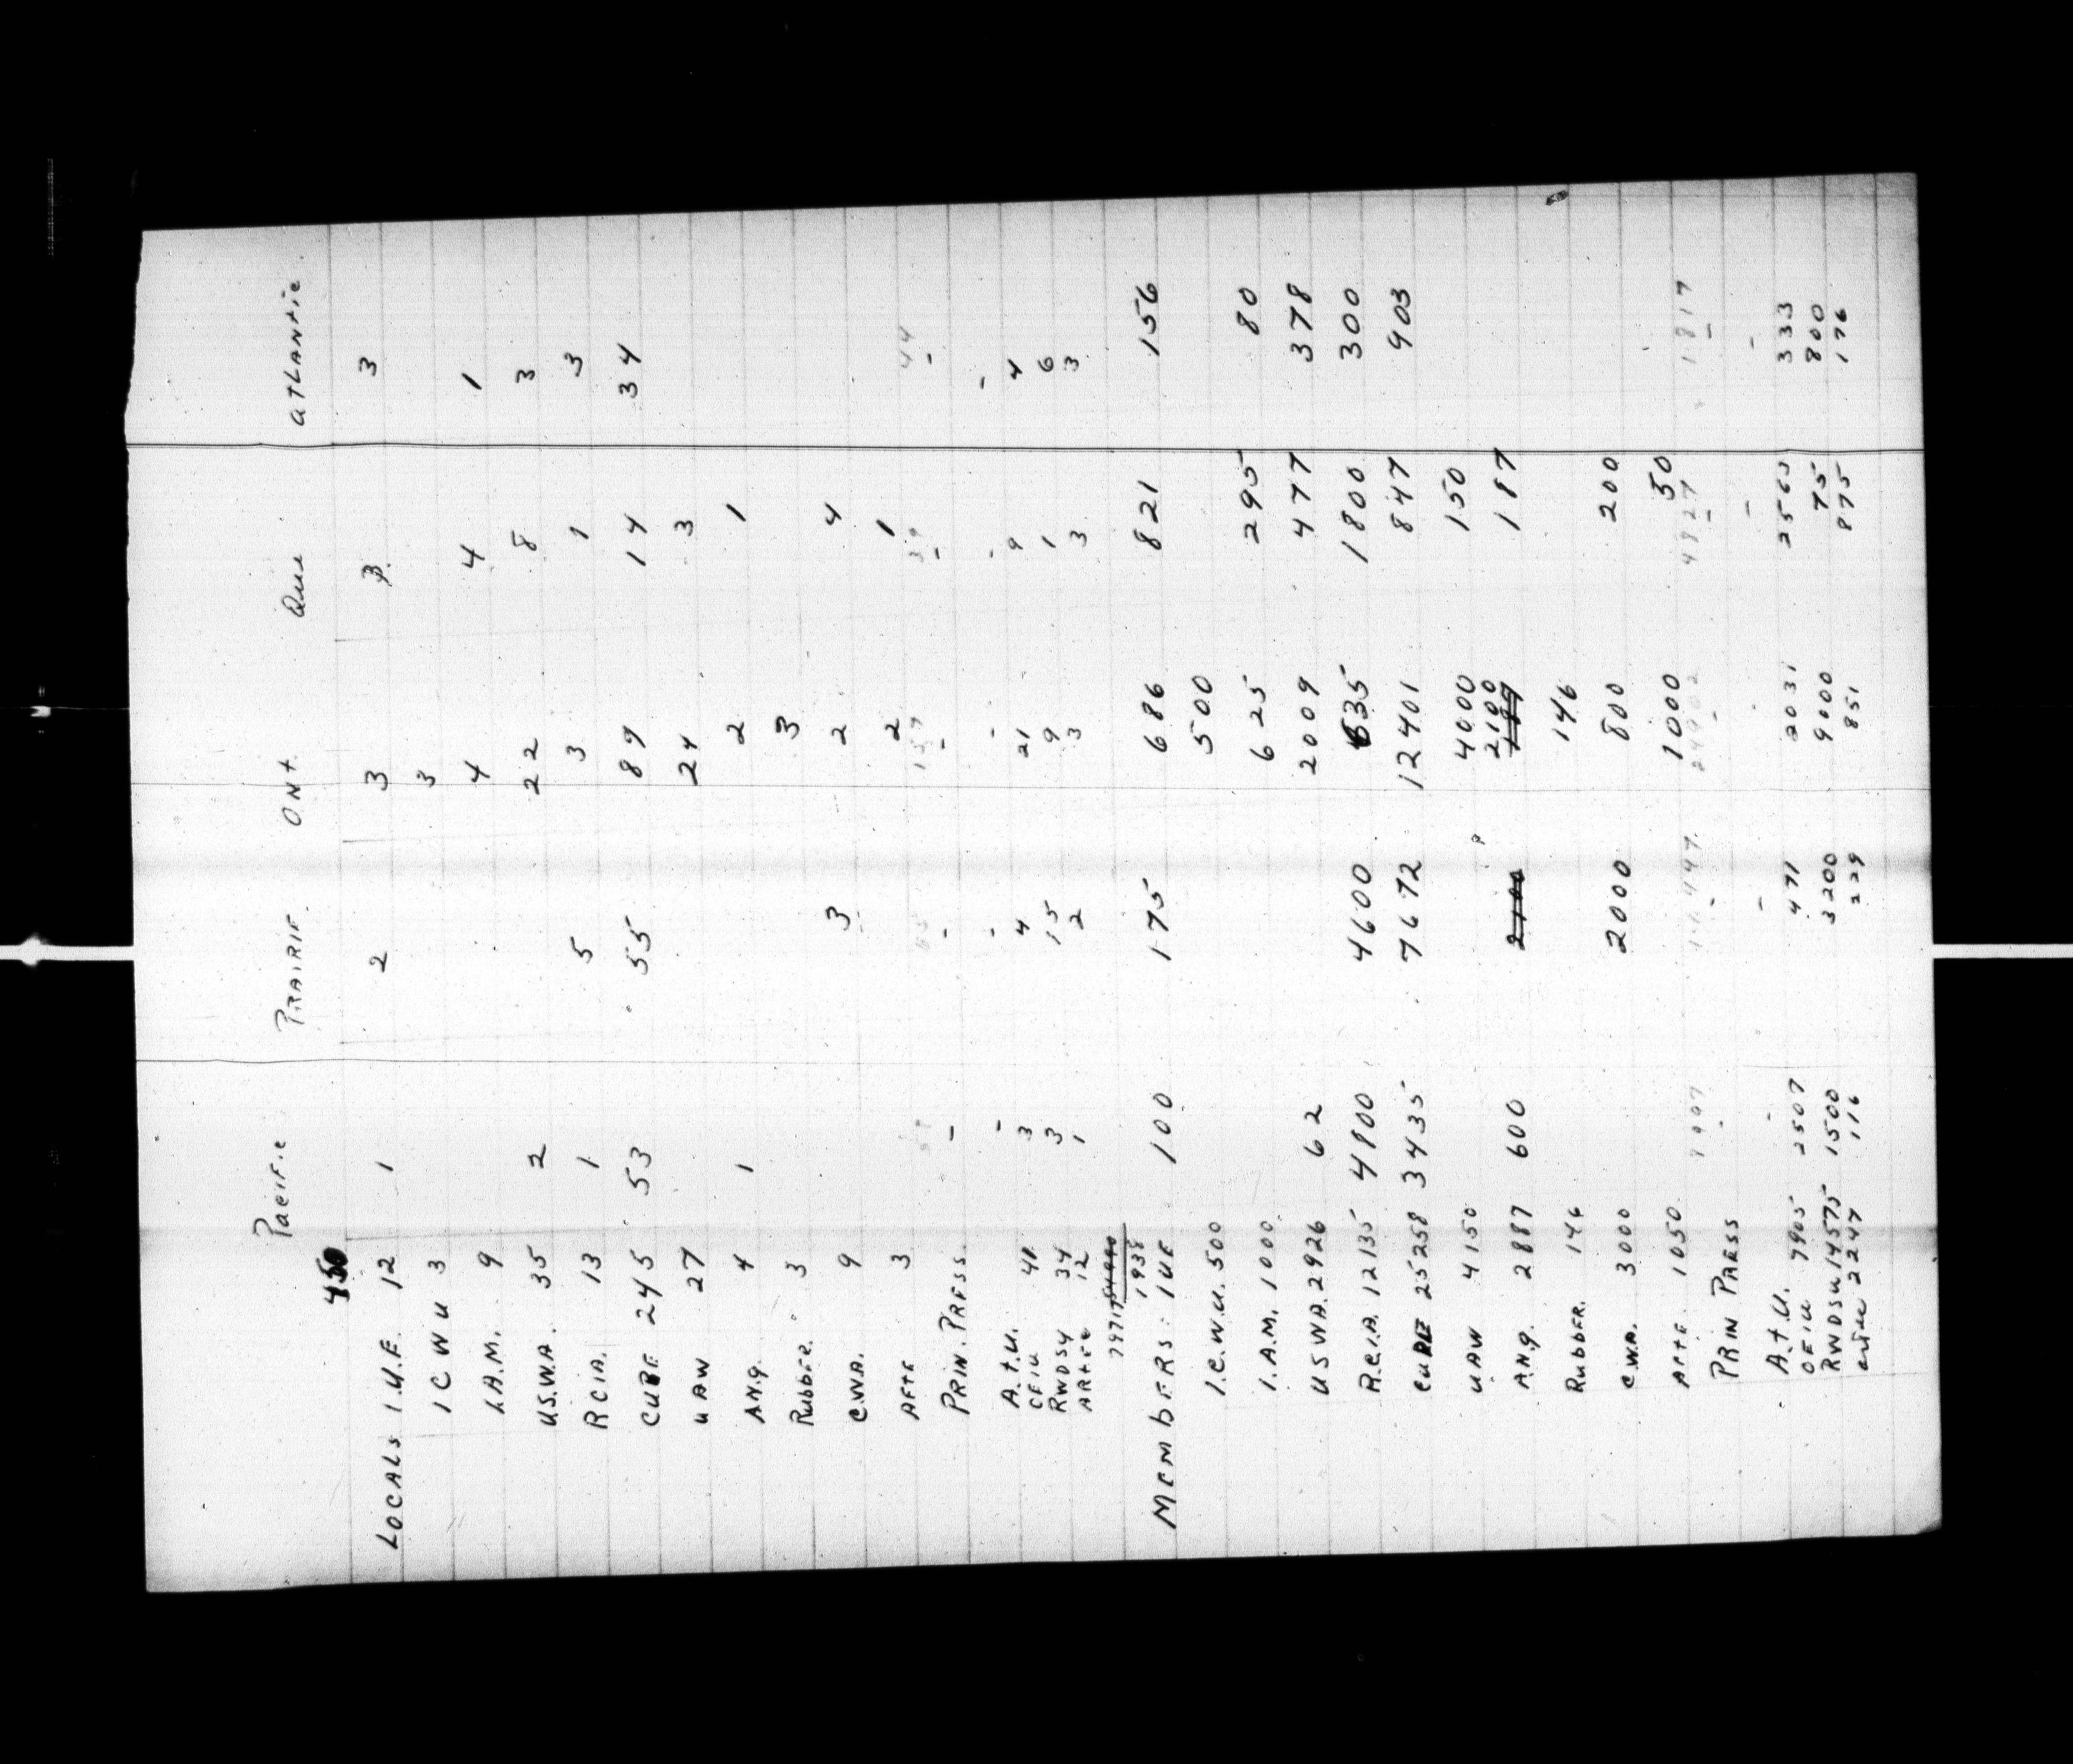 Pacific PRAIRIE. ONt. Que ATLANtic
450
LOCALS I.U.E. 12 1 2 3 3 3
ICWU 3 3
I.A.M. 9 4 4 1
U.S.W.A. 35 2 22 8 3
RCIA. 13 1 5 3 1 3
CUPE 245 53 55 89 14 34
UAW 27 24 3
A.N.g. 4 1 2 1
RubbER. 3 3
C.W.A. 9 3 2 4
AFTE 3 2 1
159 39 44
PRIN. PRESS. -
A.t.U. - - - - -
OEIU 41 3 4 21 9 4
RWDSU 34 3 15 9 1 6
ARtEc 12 1 2 3 3 3
79717
1938
MEMbERS: IUE 100 175 686 821 156
I.C.W.U. 500 500
I.A.M. 1000 625 295 80
USWA. 2926 62 2009 477 378
R.C.I.A. 12135 4800 4600 635 1800 300
CUPE 25258 3435 7672 12401 847 903
UAW 4150 4000 150
A.N.g. 2887 600 2100 2100 187
RubbER. 146 146
C.W.A. 3000 2000 800 200
AFTE. 1050 1000 50
24902 4827 1817
PRIN PRESS
A.t.U. - - - -
OEIU 7905 2507 471 2031 2563 333
RWDSU 14575 1500 3200 9000 75 800
2247 116 229 851 875 176